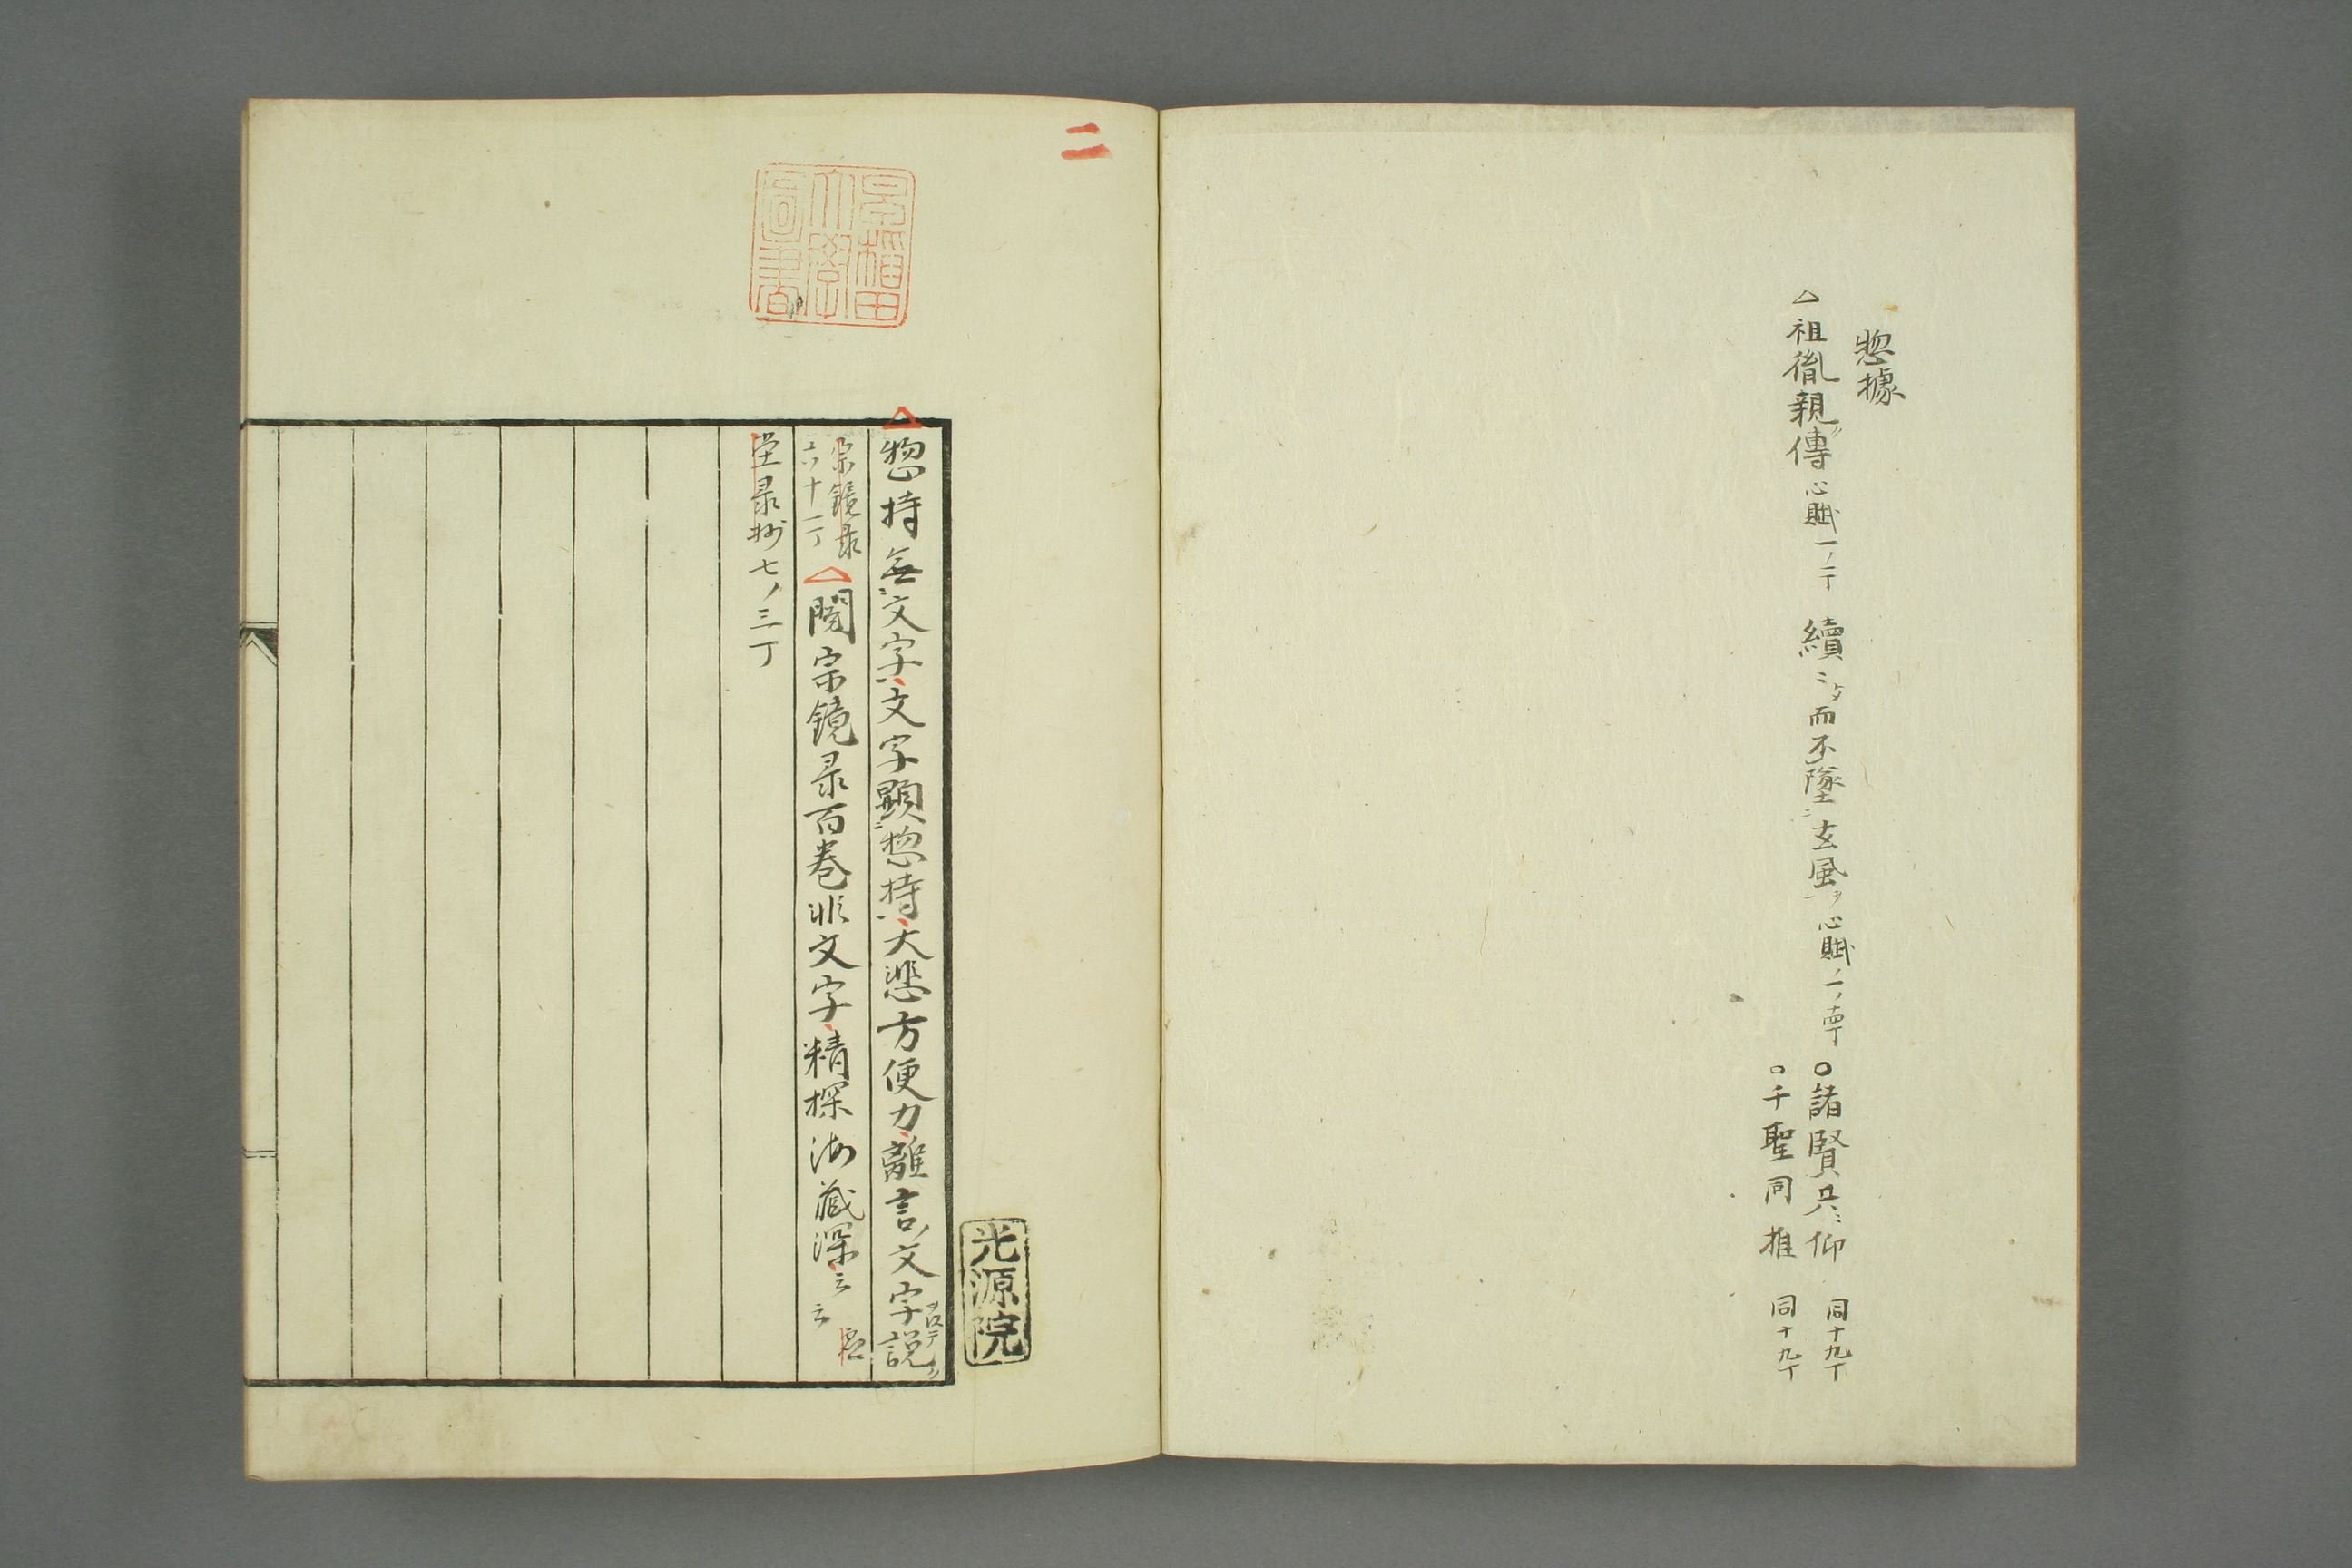 惣據
△祖胤親傳 心賦一ノ一丁 續而不墜玄風 心賦ノ一ノ
○諸賢共仰 同十九丁
○千聖同推 同十九丁
二
早稲田大學圖書
光源院
△惣持無文字文字顕惣持大悲方便力離言文字説
宗鏡录
六十一丁
△閲宗鏡录百巻非文字精探海蔵深云云
录抄七ノ三丁